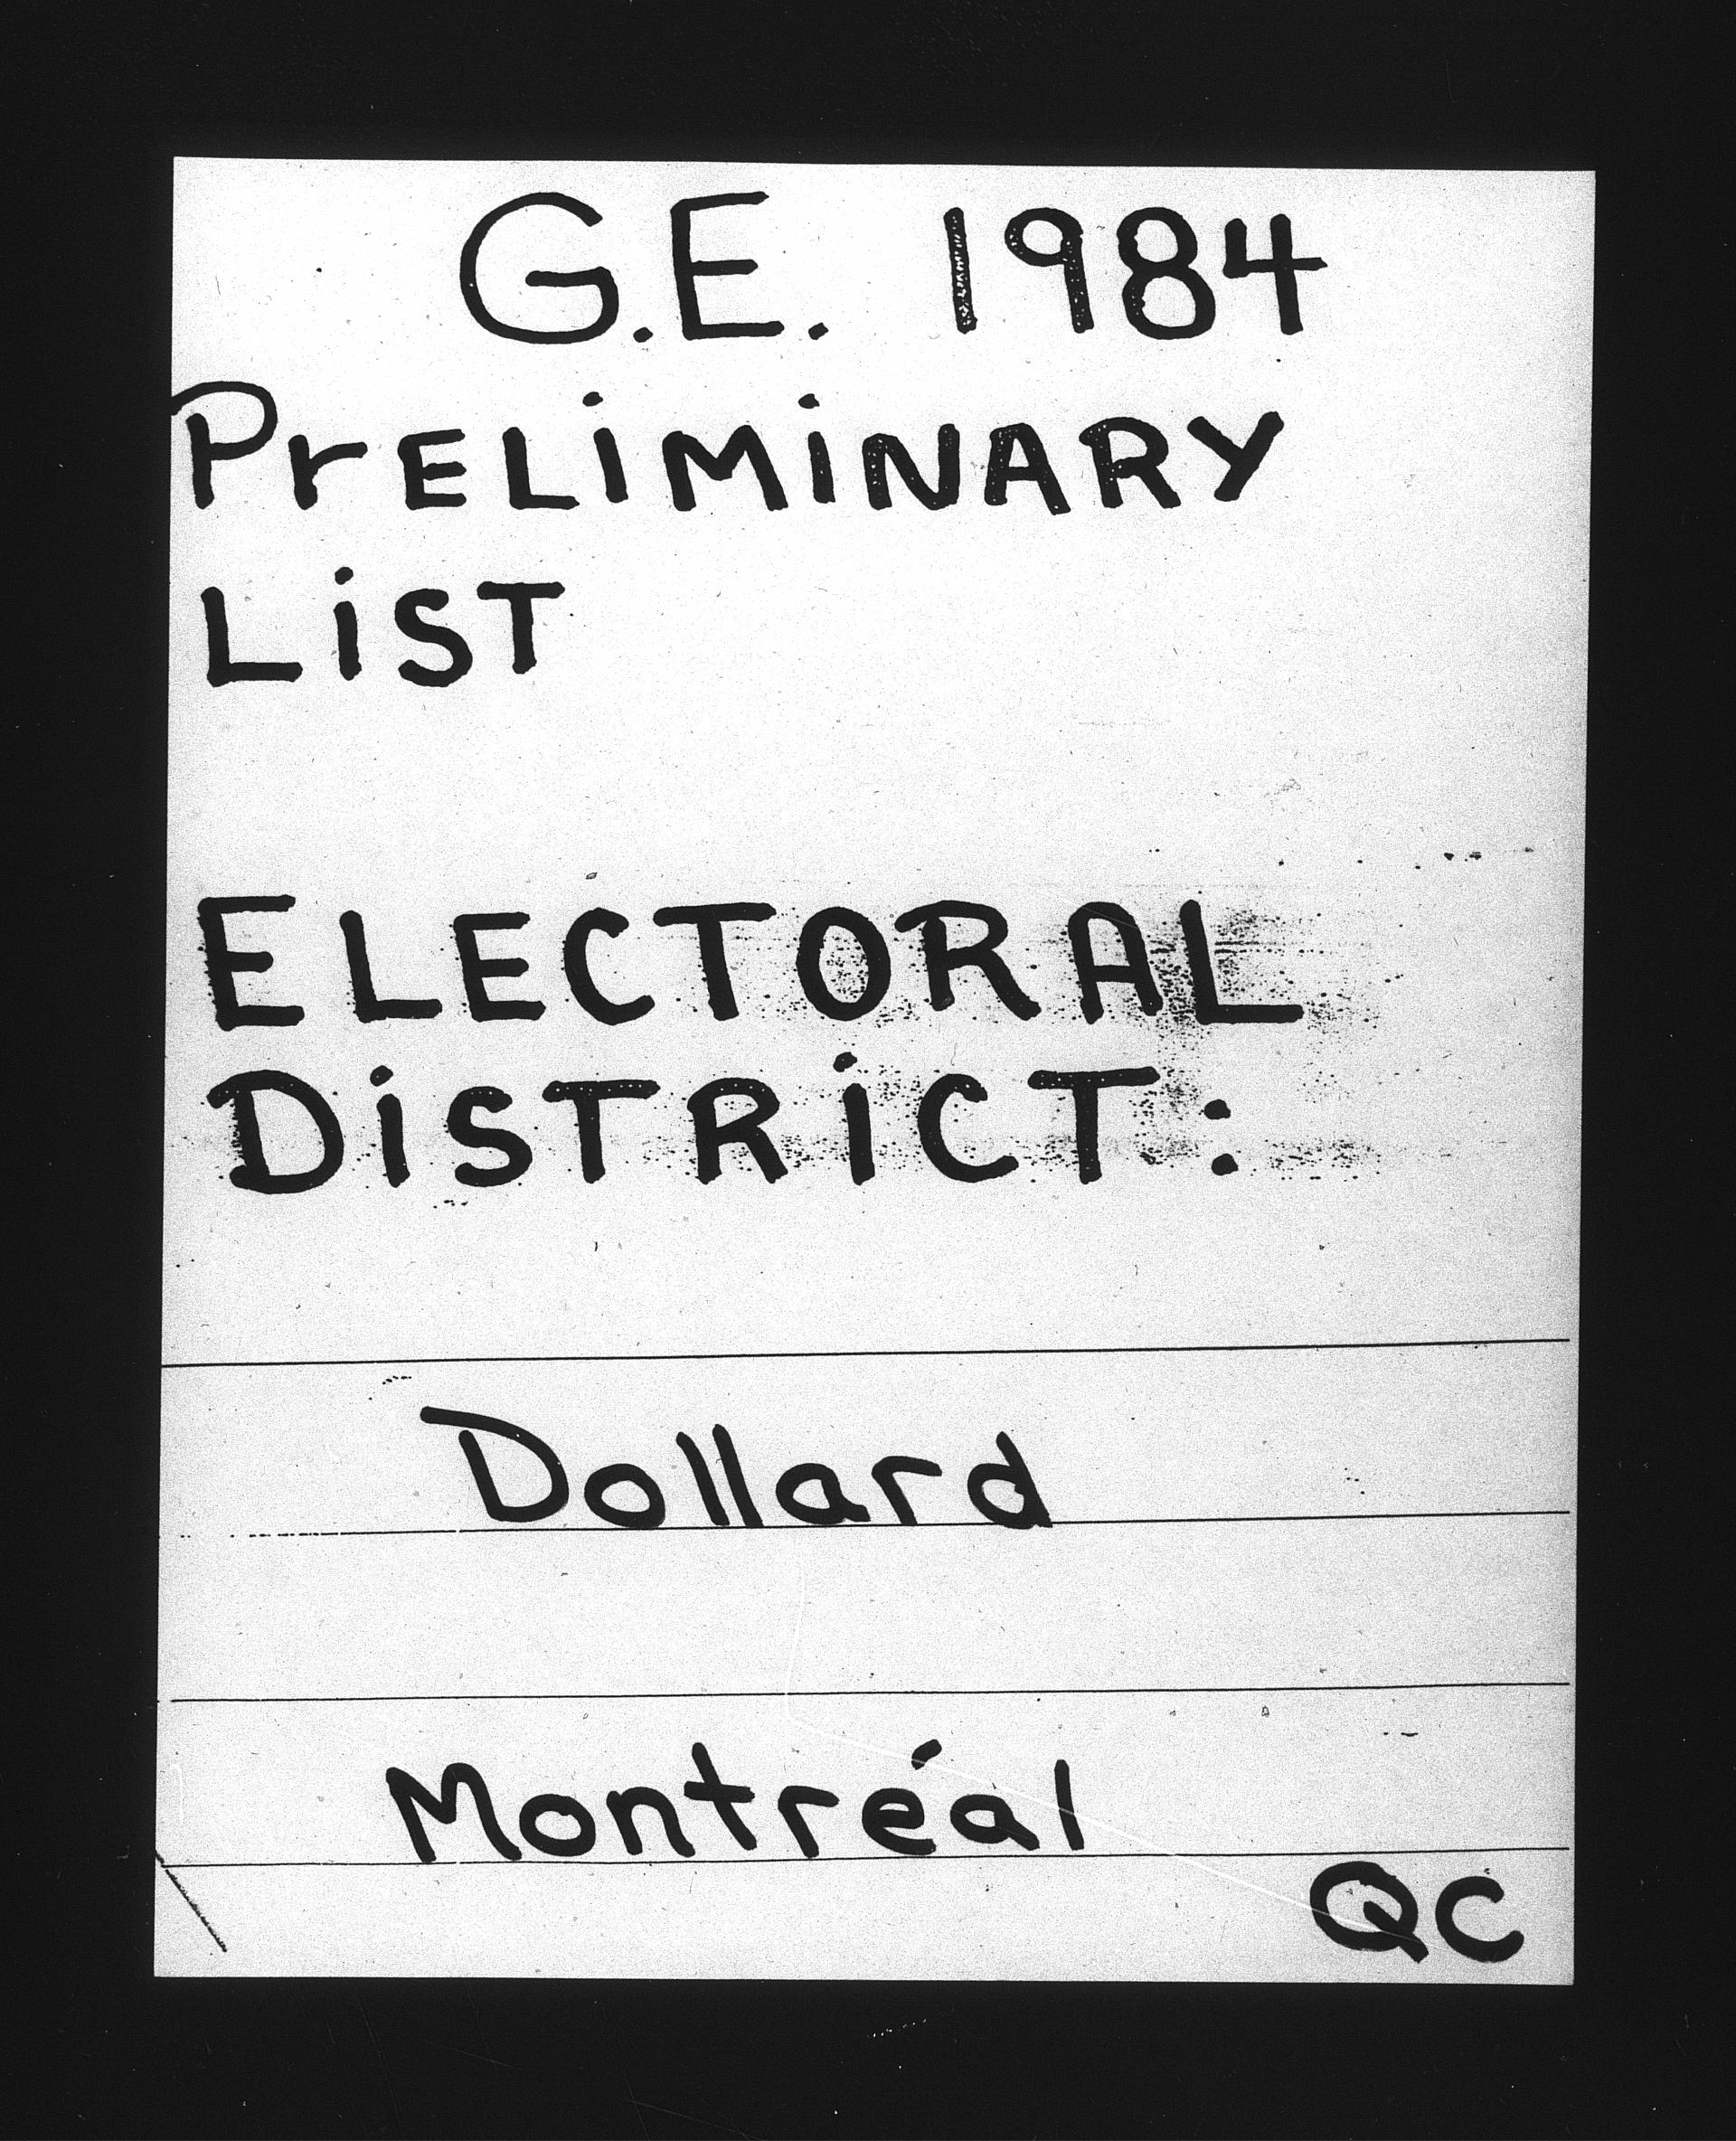 G.E. 1984
PrELiMiNARY
LiST
ELECTORAL
DiSTRiCT:
Dollard
Montréal
QC